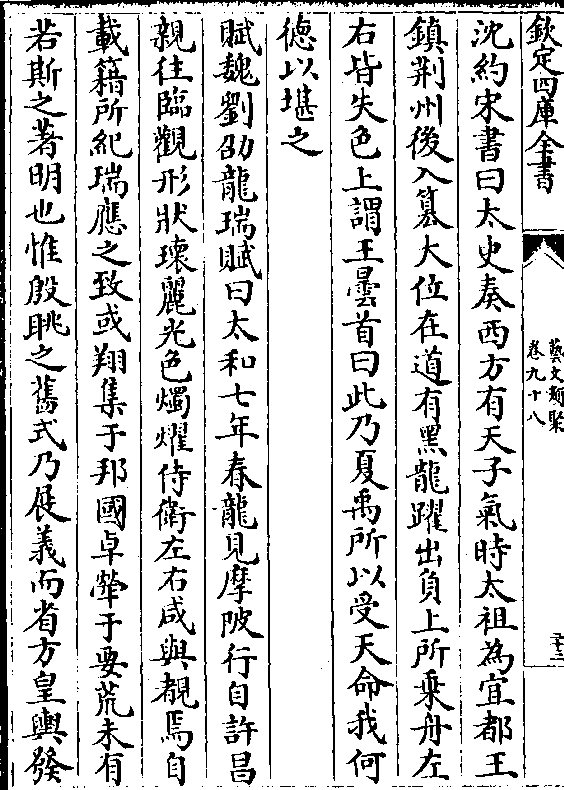 欽定四庫全書
藝文類聚
卷九十八
沈約宋書曰太史奏西方有天子氣時太祖為宜都王
鎮荆州後入纂大位在道有黑龍躍出負上所乗舟左
右皆失色上謂王曇首曰此乃夏禹所以受天命我何
徳以堪之
賦魏劉劭龍瑞賦曰太和七年春龍見摩陂行自許昌
親往臨觀形狀瓌麗光色燭燿侍衛左右咸與覩焉自
載籍所紀瑞應之致或翔集于邦國卓犖于要荒未有
若斯之著明也惟殷眺之舊式乃展義而省方皇輿發